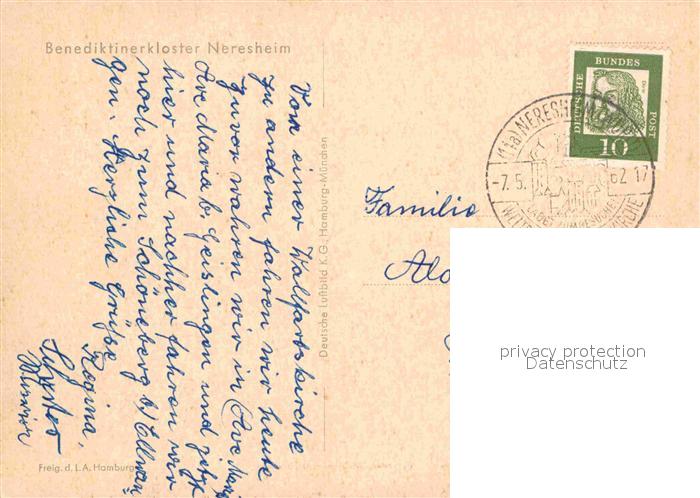 Benediktinerkloster Neresheim
Von einer Walfartskirche
zu andern fahren wir heute
zuvor wahren wir in (Ave Maria)
Ave Maria b. Geislingen und jetzt
hier und nachher fahren wir
noch zum Schöneberg b/ Ellwan
gen. Herzliche Grüße
Regina,
Schwester
Deutsche Luftbild K.G. Hamburg-München
Freig. d. L.A. Hamburg
DEUTSCHE BUNDES POST
10
(14a) NERESHEIM
-7.5. 62 17
Familie
Alo
privacy protection
Datenschutz